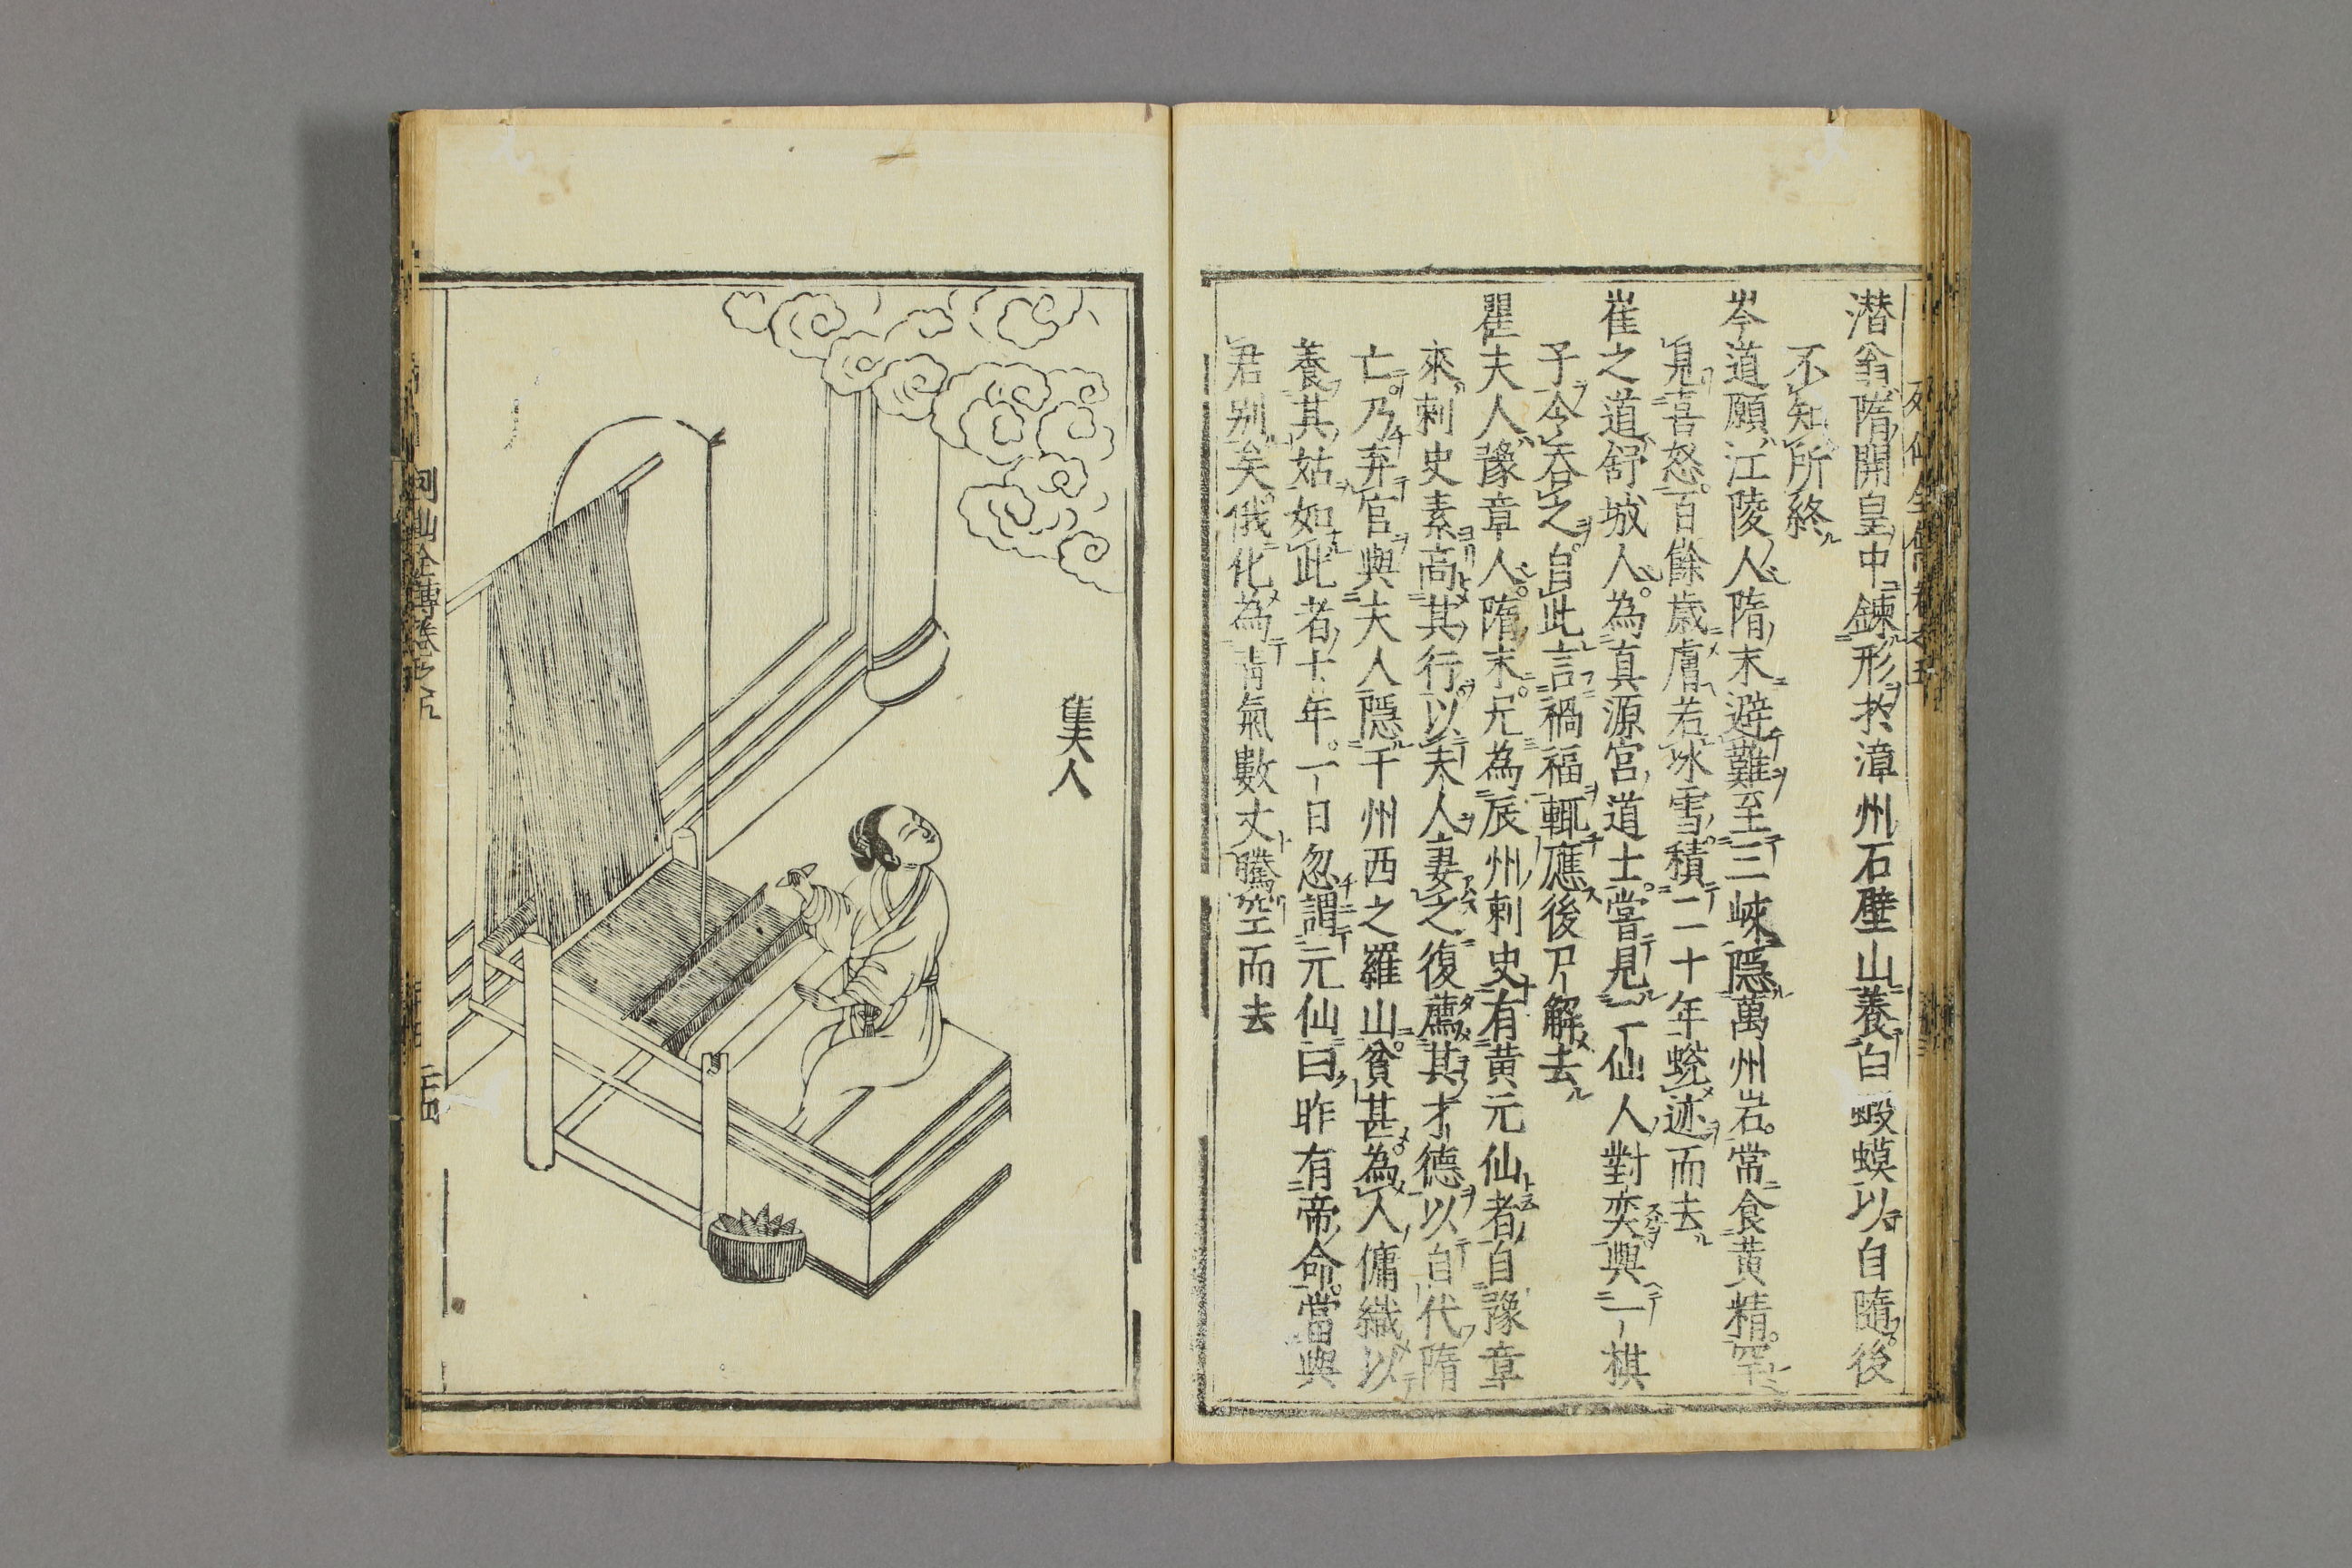 潜翁隋開皇中鍊形於漳州石壁山養白蝦蟆以自隨後
不知所終
岑道願江陵人隋末避難至三峽隱萬州岩常食黄精罕
見喜怒百餘歳膚若冰雪積二十年蛻迹而去
崔之道舒城人為真源宮道士嘗見一仙人對奕與一棋
子令吞之自此言禍福輒應後尸解去
瞿夫人豫章人隋末兄為辰州刺史有黄元仙者自豫章
來刺史素高其行以夫人妻之復薦其才德以自代隋
亡乃弃官與夫人隠于州西之羅山貧甚為人傭織以
養其姑如此者十年一日忽謂元仙曰昨有帝命當與
君别矣俄化為青氣數丈騰空而去
夫人
列仙全傳卷之五
二十四